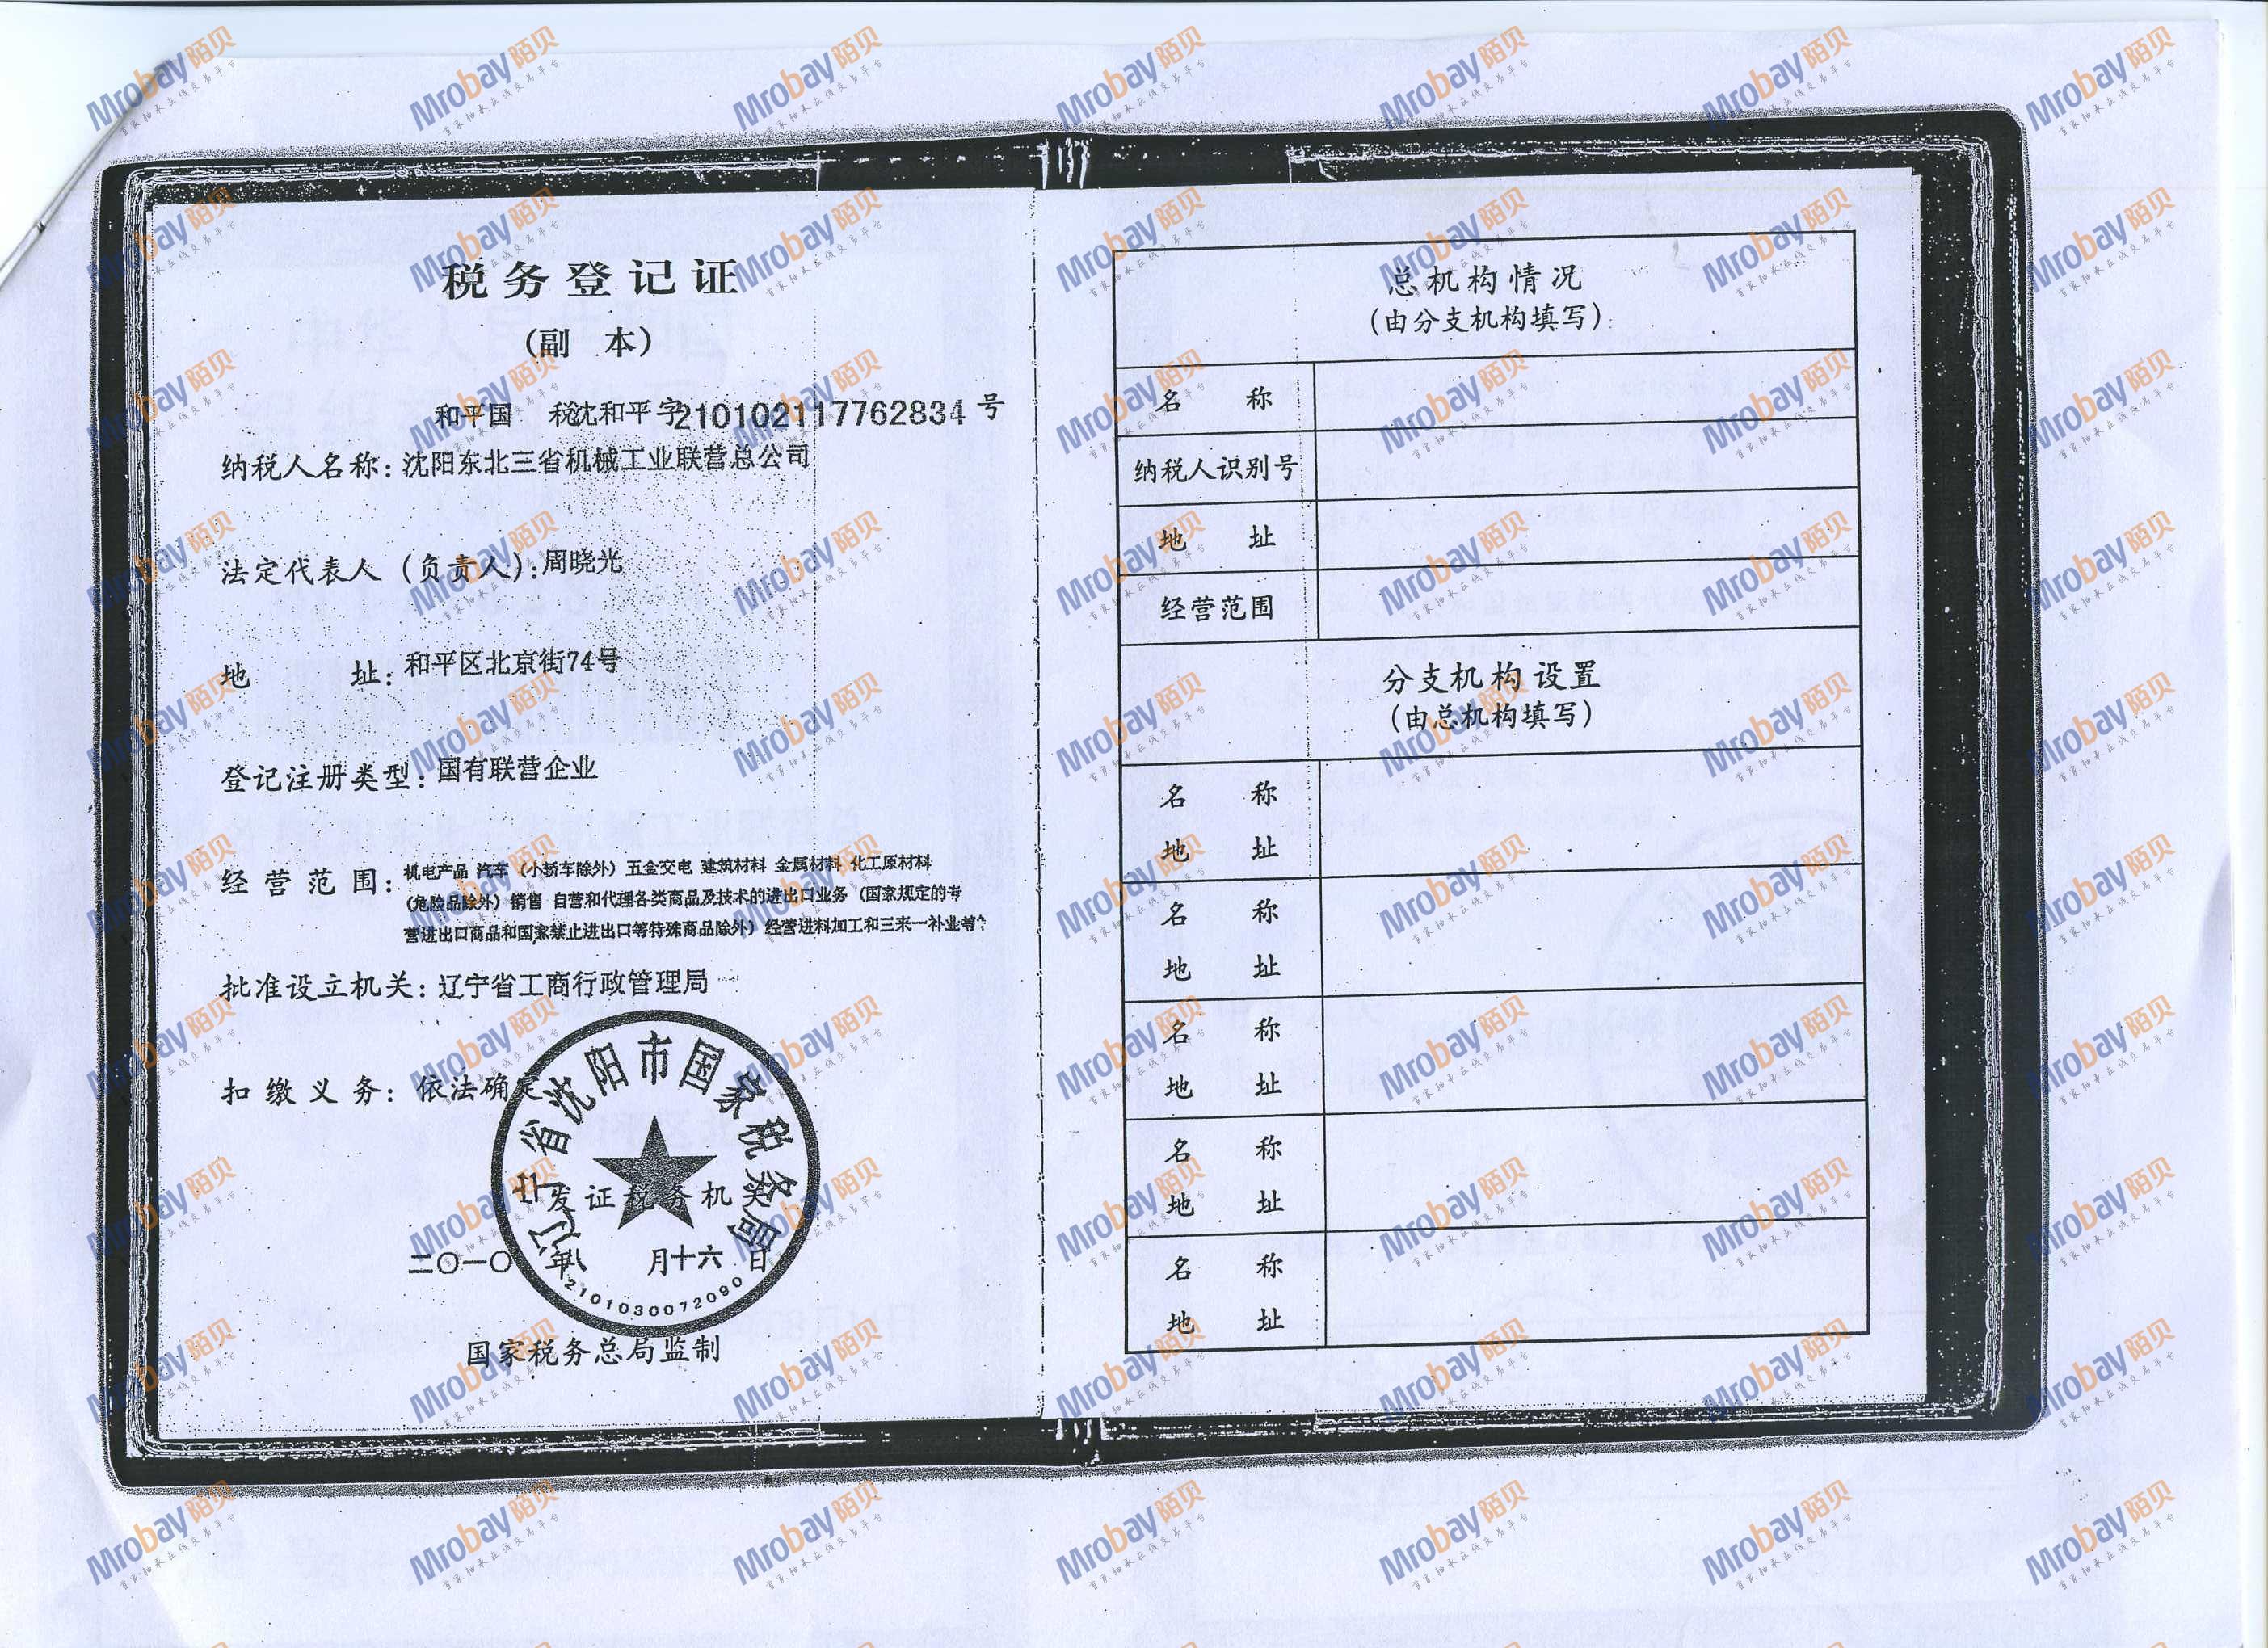 税务登记证
(副 本)
和平国 税沈和平字210102117762834 号
纳税人名称: 沈阳东北三省机械工业联营总公司
法定代表人 (负责人): 周晓光
地 址: 和平区北京街74号
登记注册类型: 国有联营企业
经 营 范 围: 机电产品 汽车 (小轿车除外) 五金交电 建筑材料 金属材料 化工原材料
(危险品除外) 销售 自营和代理各类商品及技术的进出口业务 (国家规定的专
营进出口商品和国家禁止进出口等特殊商品除外) 经营进料加工和三来一补业
批准设立机关: 辽宁省工商行政管理局
扣 缴 义 务: 依法确定
辽宁省沈阳市国家税务局
发证税务机
二〇一〇 年八 月十六 日
2101030072090
国家税务总局监制
总机构情况
(由分支机构填写)
名 称
纳税人识别号
地 址
经营范围
分支机构设置
(由总机构填写)
名 称
地 址
名 称
地 址
名 称
地 址
名 称
地 址
名 称
地 址
Mrobay陌贝